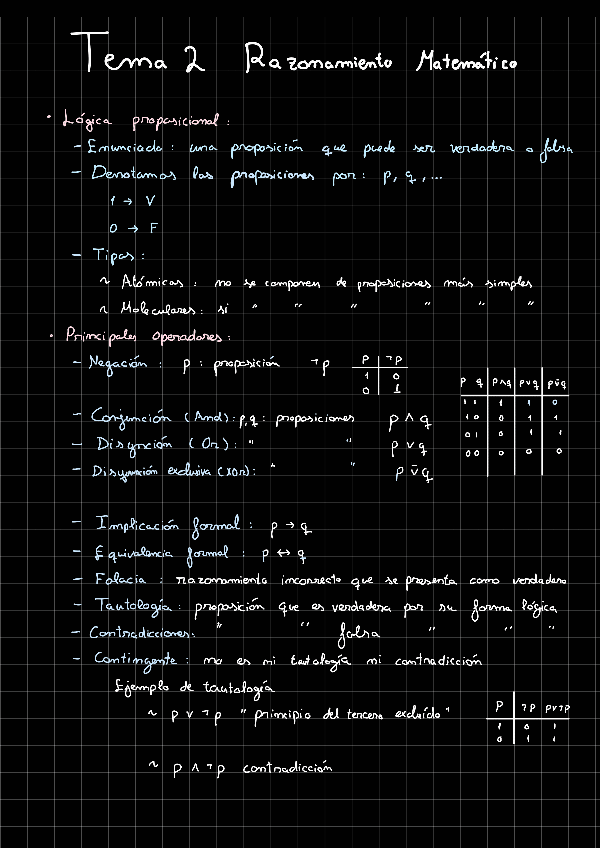 Tema 2 Razonamiento Matemático
• Lógica proposicional:
- Enunciado: una proposición que puede ser verdadera o falsa
- Denotamos las proposiciones por: p, q, ...
1 → V
0 → F
- Tipos:
~ Atómicas: no se componen de proposiciones más simples
~ Moleculares: si " " " " " "
• Principales operadores:
- Negación: p: proposición ¬p
p ¬p
1 0
0 1
p q p∧q p∨q p⊻q
1 1 1 1 0
1 0 0 1 1
0 1 0 1 1
0 0 0 0 0
- Conjunción (And): p,q: proposiciones p ∧ q
- Disyunción (Or): " " p ∨ q
- Disyunción exclusiva (XOR): " " p ⊻ q
- Implicación formal: p → q
- Equivalencia formal: p ↔ q
- Falacia: razonamiento incorrecto que se presenta como verdadero
- Tautología: proposición que es verdadera por su forma lógica
- Contradicciones: " " falsa " " "
- Contingente: no es ni tautología ni contradicción
Ejemplo de tautología
~ p ∨ ¬p "principio del tercero excluído"
p ¬p p∨¬p
1 0 1
0 1 1
~ p ∧ ¬p contradicción